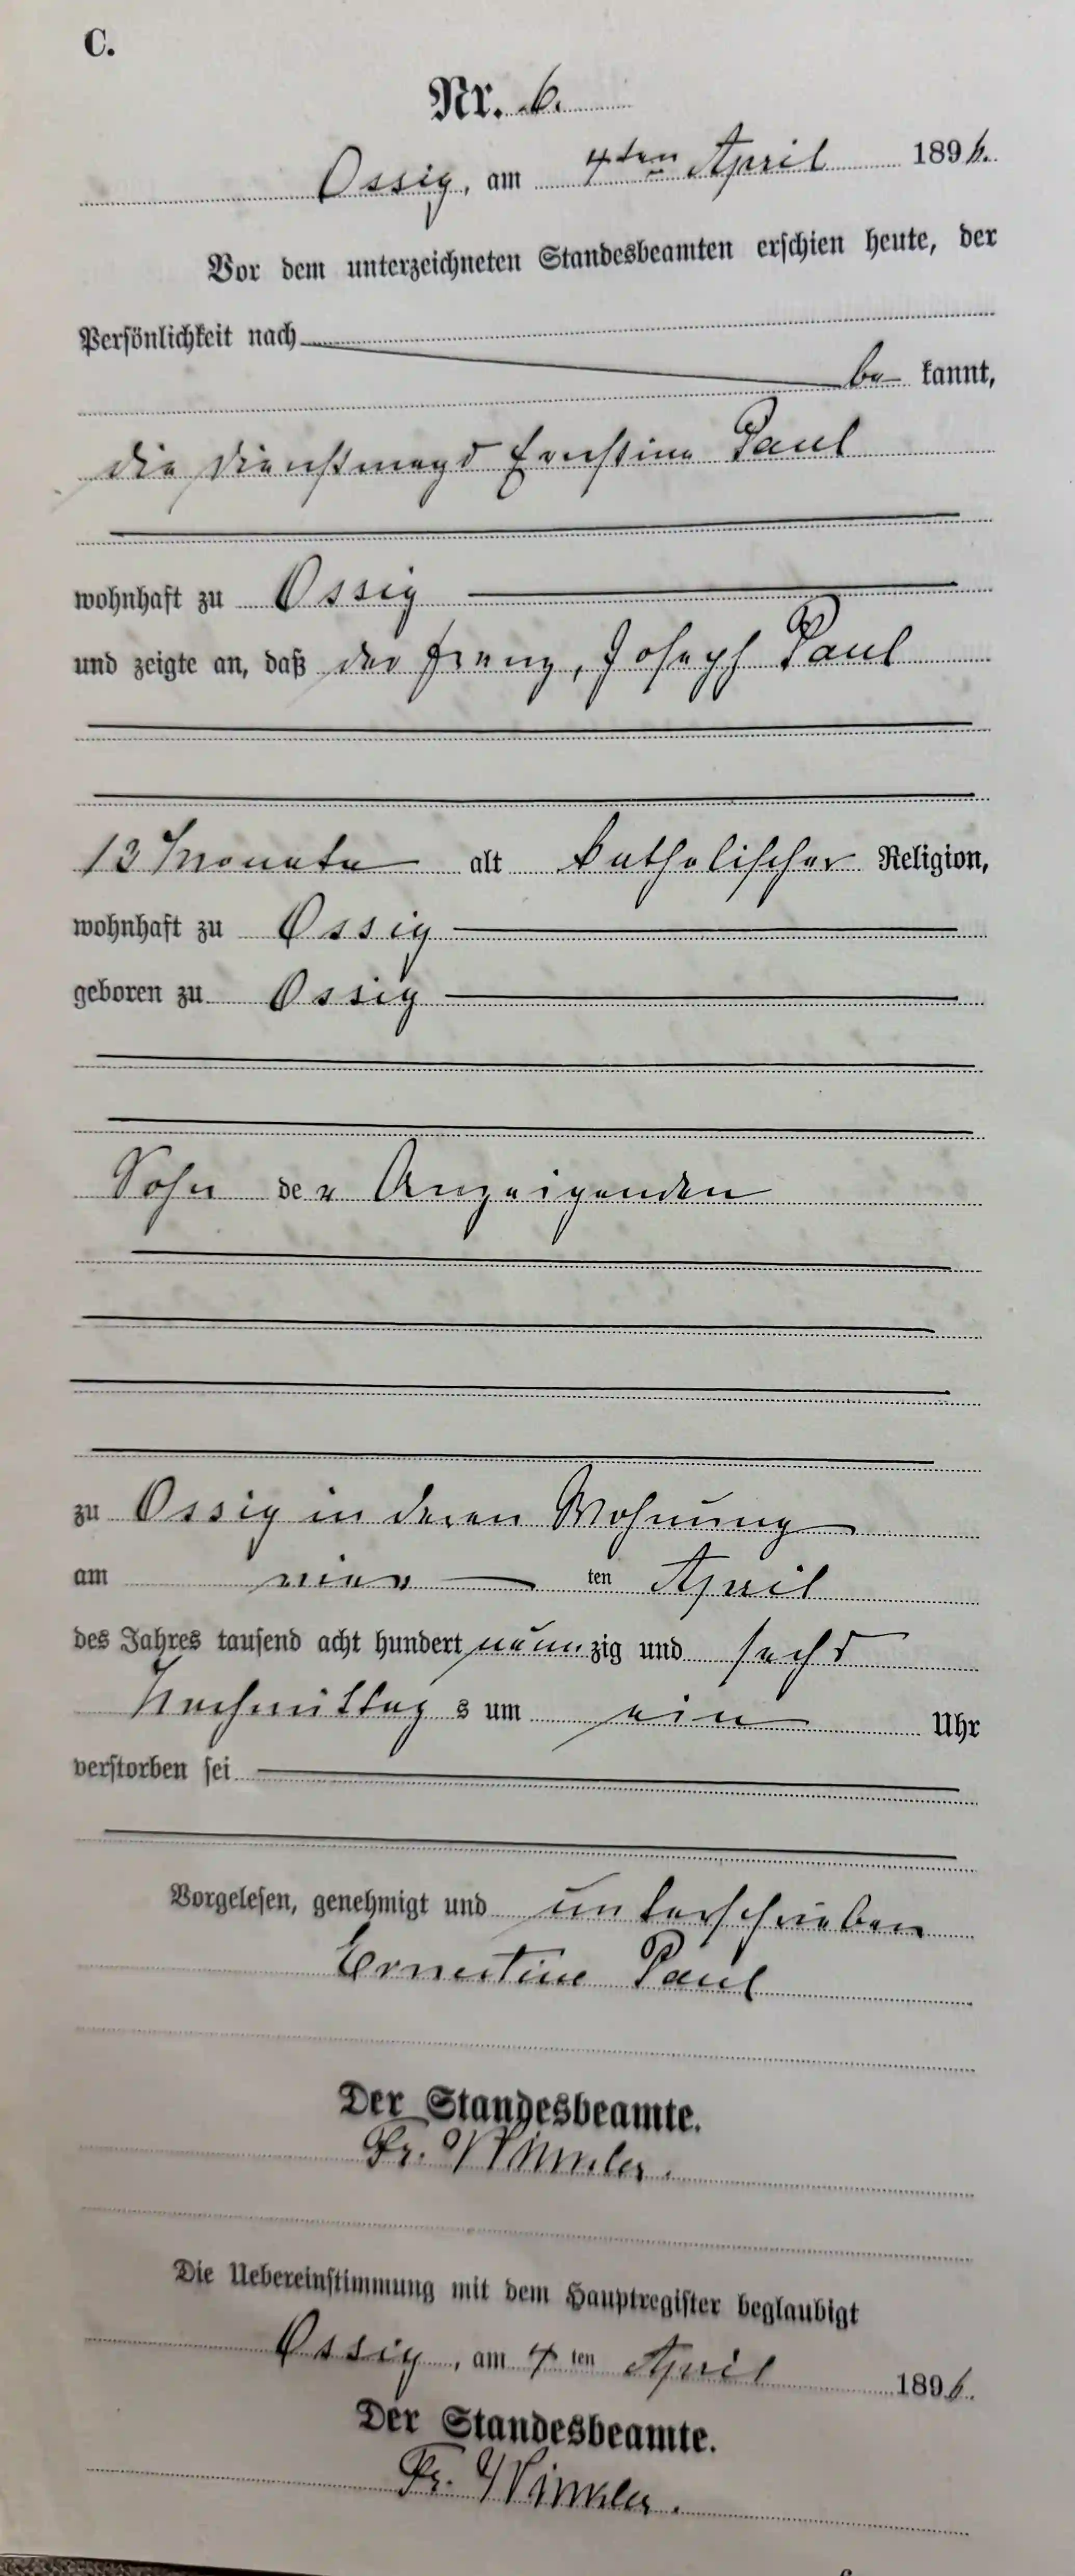 C.
Nr. 6.
Ossig, am 4ten April 1896.
Vor dem unterzeichneten Standesbeamten erschien heute, der
Persönlichkeit nach
be kannt,
die Dienstmagd Ernstine Paul
wohnhaft zu Ossig
und zeigte an, daß der Franz, Joseph Paul
13 Monate alt katholischer Religion,
wohnhaft zu Ossig
geboren zu Ossig
Sohn der Anzeigenden
zu Ossig in deren Wohnung
am vier ten April
des Jahres tausend acht hundert neunzig und sechs
Nachmittags um ein Uhr
verstorben sei
Vorgelesen, genehmigt und unterschrieben
Ernestine Paul
Der Standesbeamte.
Fr. Winkler.
Die Uebereinstimmung mit dem Hauptregister beglaubigt
Ossig, am 4ten April 1896.
Der Standesbeamte.
Fr. Winkler.